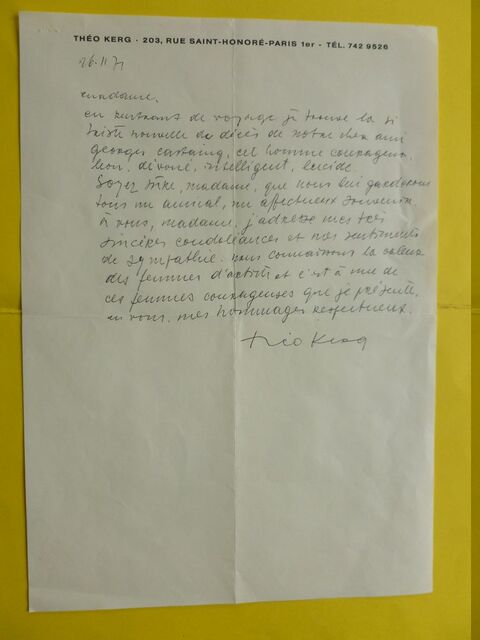 THÉO KERG · 203, RUE SAINT-HONORÉ-PARIS 1er · TÉL. 742 9526
26.11 71
madame,
en rentrant de voyage je trouve la si
triste nouvelle du décès de notre cher ami
georges castaing, cet homme courageux,
bon, dévoué, intelligent, lucide.
Soyez sûre, madame, que nous lui garderons
tous un amical, un affectueux souvenir.
à vous, madame, j'adresse mes très
sincères condoléances et mes sentiments
de sympathie. nous connaissons la valeur
des femmes d'artiste et c'est à une de
ces femmes courageuses que je présente,
en vous, mes hommages respectueux.
théo Kerg